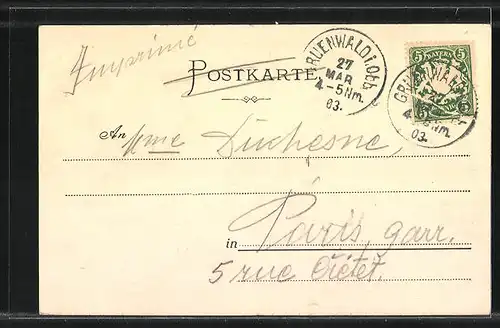 Imprimé
POSTKARTE
GRUENWALD i. Oth.
27
MAR
4-5 Nm.
03.
BAYERN
5 5
GRUENWALD
4-5 Nm.
03.
An Mme Duchesne,
in Paris, gare.
5 rue